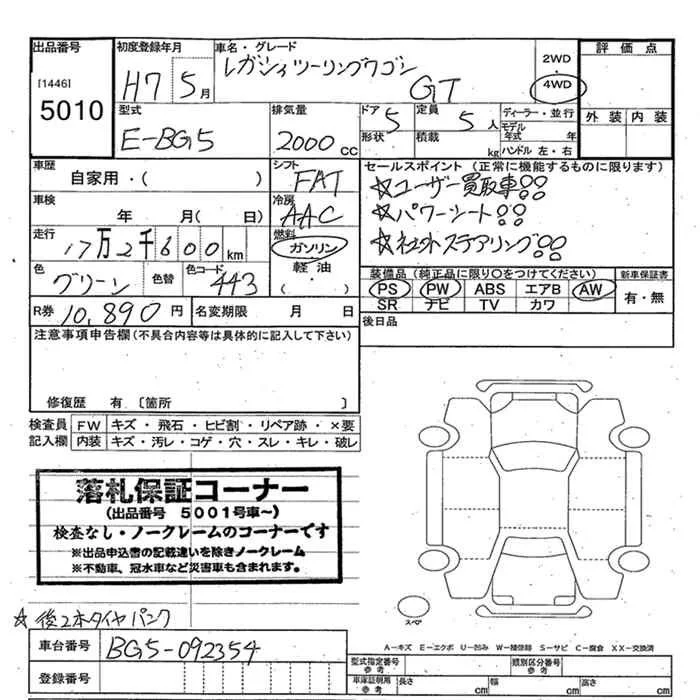 出品番号 初度登録年月 車名・グレード 2WD 評価点
[1446] H7 5月 レガシィツーリングワゴン GT 4WD
5010 型式 排気量 ドア 定員 ディーラー・並行 外装 内装
E-BG5 2000cc 5 5人 モデル年式 年
形状 積載 kg ハンドル 左・右
車歴 シフト セールスポイント(正常に機能するものに限ります)
自家用・( ) FAT ☆ユーザー買取車!!
車検 冷房 ☆パワーシート!!
年 月( 日) AAC ☆社外ステアリング!!
走行 燃料
17万2千600km ガソリン 装備品(純正品に限り○をつけてください) 新車保証書
色 色替 色コード 軽油・ PS PW ABS エアB AW 有・無
グリーン 443 ( ) SR ナビ TV カワ
R券 10,890円 名変期限 月 日 後日品
注意事項申告欄(不具合内容等は具体的に記入して下さい)
修復歴 有 [箇所 ]
検査員 FW キズ・飛石・ヒビ割・リペア跡・×要
記入欄 内装 キズ・汚レ・コゲ・穴・スレ・キレ・破レ
落札保証コーナー
(出品番号 5001号車〜)
検査なし・ノークレームのコーナーです
※出品申込書の記載違いを除きノークレーム
※不動車、冠水車など災害車も含まれます。
スペア
☆後2本タイヤパンク
車台番号 BG5-092354
A−キズ E−エクボ U−凹み W−補修跡 S−サビ C−腐食 XX−交換済
登録番号 型式指定番号 参考 類別区分番号 参考
車庫証明用 参考 長さ cm 幅 cm 高さ cm